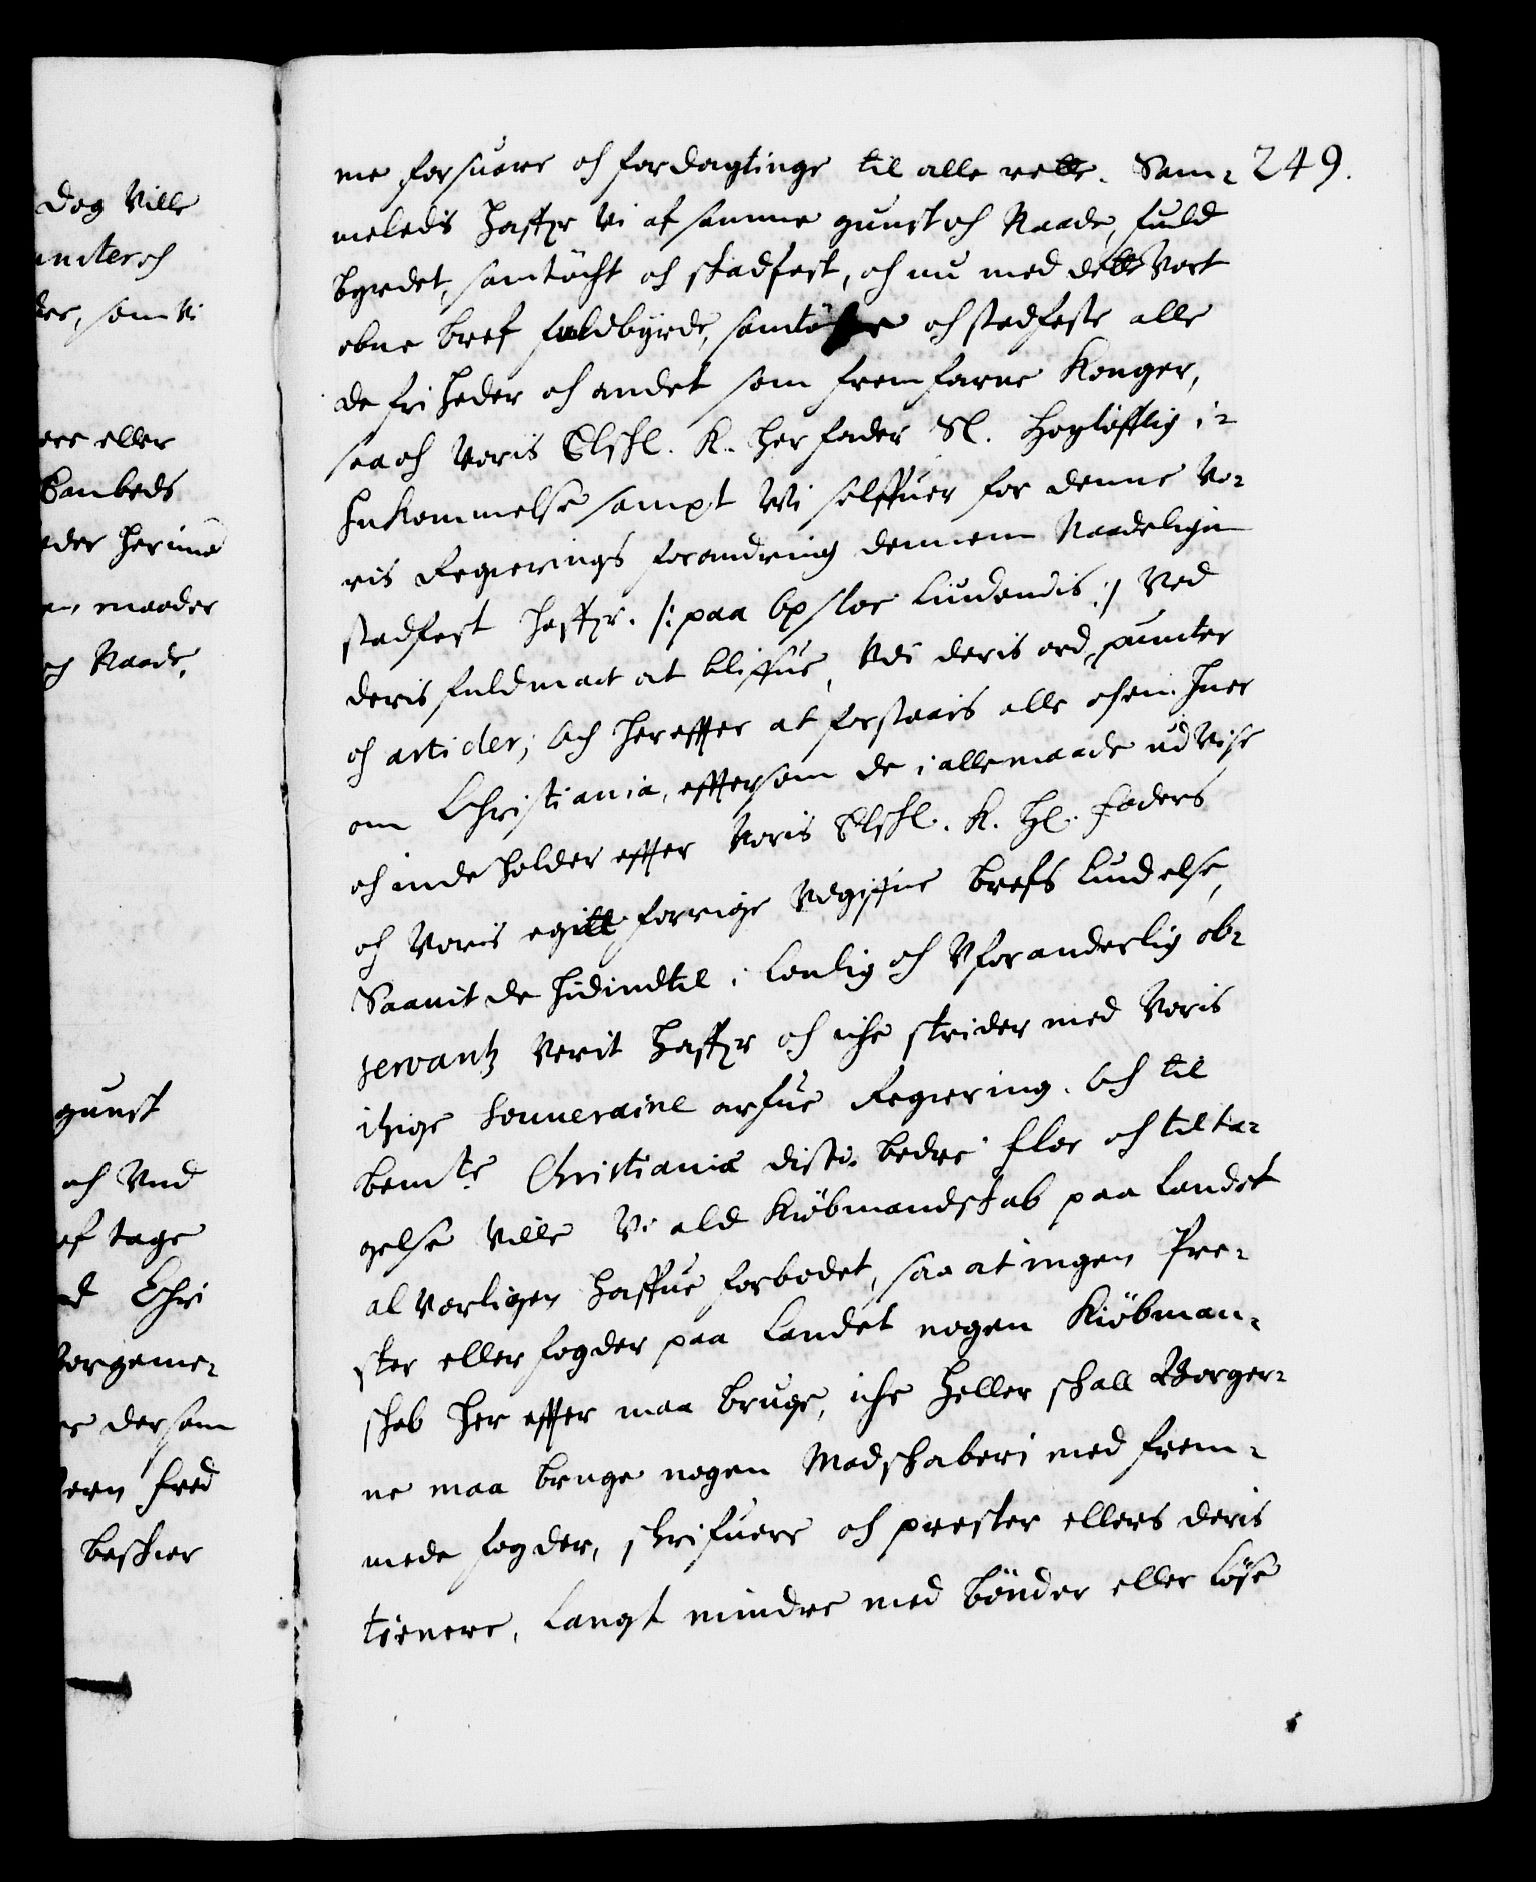 dog Ville
uncter och
der, som Vi
ere eller
Banbeds
eder herimod
maader
och Naade,
gunst
och Vnd
af tage
Chri
Borgeme¬
dersom
fred
beskier
249.
me forsuare och fordagtinge til alle rette. Sam¬
meleds haffr Vi af samme gunst och Naade, fuld
byrdet, samtöcht och stadfest, och nu med dette Vort
obne bref fuldbyrde, samtöcke och stadfeste alle
de friheder och andet som fremfarne Konger,
saa och Voris Elschl. K. Her fader Sl. Hogloflig i¬
hukommelse sampt Wi selffuer for denne Vo¬
ris Regierings forandring dennem Naadeligen
stadfest haffr. /: paa Opsloe Liudendis :/ Ved
deris fuldmact at bliffue, Vdi deris ord, puncter
och articler; Och hereffter at forstaais alle och en huer
om Christiania, effter som de i alle maade udVise
och inde holder effter Voris Elschl. K. Hl. faders
och Voris egitt forrige Vdgiffne brefs Liudelse,
Saauit de hidindtil i Lonlig och Vforanderlig ob¬
servantz Verit haffr och iche strider med Voris
itzige Souveraine arfue Regiering. Och til
bemte Christianiæ diste bedre flor och tilta¬
gelse Ville Vi ald Kiöbmandskab paa Landet
alVorligen haffue forbodet, saa at ingen Pre¬
ster eller fogder paa Landet nogen Kiöbman¬
skab her effter maa bruge, iche heller skall Borger¬
ne maa bruge nogen Madschaberi med frem¬
mede fogder, skrifuere och prester ellers deris
tienere, Langt mindre med bönder eller Löse